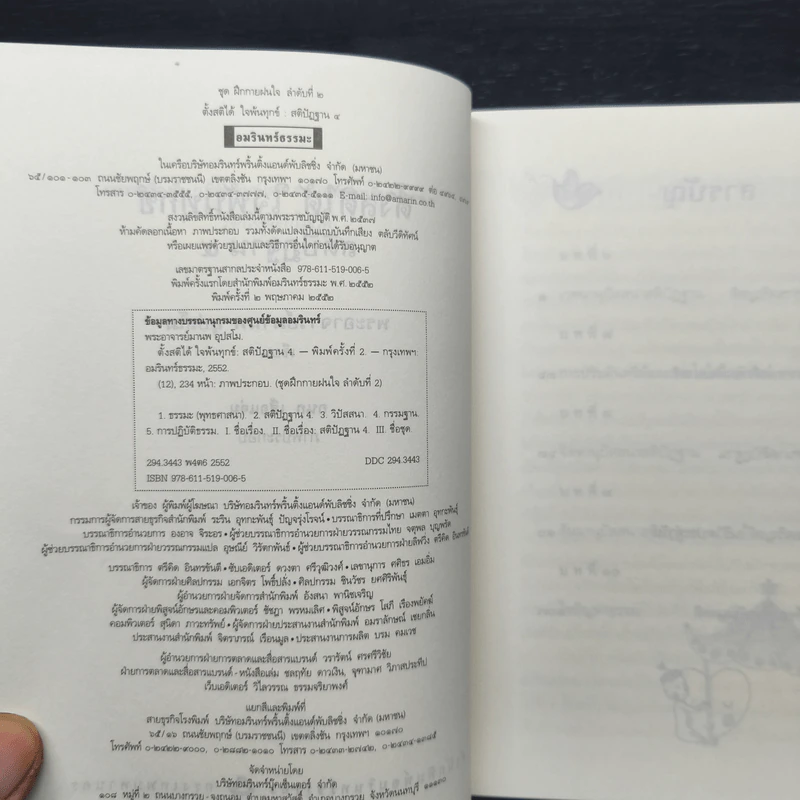 ชุด ฝึกกายฝนใจ ลำดับที่ ๒
ตั้งสติได้ ใจพ้นทุกข์ : สติปัฏฐาน ๔
อมรินทร์ธรรมะ
ในเครือบริษัทอมรินทร์พริ้นติ้งแอนด์พับลิชชิ่ง จำกัด (มหาชน)
๖๕/๑๐๑-๑๐๓ ถนนชัยพฤกษ์ (บรมราชชนนี) เขตตลิ่งชัน กรุงเทพฯ ๑๐๑๗๐ โทรศัพท์ ๐-๒๔๒๒-๙๙๙๙ ต่อ
โทรสาร ๐-๒๔๓๔-๓๕๕๕, ๐-๒๔๓๔-๓๗๗๗, ๐-๒๔๓๕-๕๑๑๑ E-mail: info@amarin.co.th
สงวนลิขสิทธิ์หนังสือเล่มนี้ตามพระราชบัญญัติ พ.ศ. ๒๕๓๗
ห้ามคัดลอกเนื้อหา ภาพประกอบ รวมทั้งดัดแปลงเป็นแถบบันทึกเสียง ตลับวีดิทัศน์
หรือเผยแพร่ด้วยรูปแบบและวิธีการอื่นใดก่อนได้รับอนุญาต
เลขมาตรฐานสากลประจำหนังสือ 978-611-519-006-5
พิมพ์ครั้งแรกโดยสำนักพิมพ์อมรินทร์ธรรมะ พ.ศ. ๒๕๕๒
พิมพ์ครั้งที่ ๒ พฤษภาคม ๒๕๕๒
ข้อมูลทางบรรณานุกรมของศูนย์ข้อมูลอมรินทร์
พระอาจารย์มานพ อุปสโม.
ตั้งสติได้ ใจพ้นทุกข์: สติปัฏฐาน 4. — พิมพ์ครั้งที่ 2. — กรุงเทพฯ
อมรินทร์ธรรมะ, 2552.
(12), 234 หน้า: ภาพประกอบ. (ชุดฝึกกายฝนใจ ลำดับที่ 2)
1. ธรรมะ (พุทธศาสนา). 2. สติปัฏฐาน 4. 3. วิปัสสนา. 4. กรรมฐาน.
5. การปฏิบัติธรรม. I. ชื่อเรื่อง. II. ชื่อเรื่อง: สติปัฏฐาน 4. III. ชื่อชุด.
294.3443 พ4ต6 2552 DDC 294.3443
ISBN 978-611-519-006-5
เจ้าของ ผู้พิมพ์ผู้โฆษณา บริษัทอมรินทร์พริ้นติ้งแอนด์พับลิชชิ่ง จำกัด (มหาชน)
กรรมการผู้จัดการสายธุรกิจสำนักพิมพ์ ระริน อุทกะพันธุ์ ปัญจรุ่งโรจน์ • บรรณาธิการที่ปรึกษา เมตตา อุทกะพันธุ์
บรรณาธิการอำนวยการ องอาจ จิระอร • ผู้ช่วยบรรณาธิการอำนวยการฝ่ายวรรณกรรมไทย จตุพล บุญพรัด
ผู้ช่วยบรรณาธิการอำนวยการฝ่ายวรรณกรรมแปล อุษณีย์ วิรัตกพันธ์ • ผู้ช่วยบรรณาธิการอำนวยการฝ่ายลิฟวิ่ง ตรีคิด อินทรขันตี
บรรณาธิการ ตรีคิด อินทรขันตี • ซับเอดิเตอร์ ดวงตา ศรีวุฒิวงศ์ • เลขานุการ ศศิธร เอมอิ่ม
ผู้จัดการฝ่ายศิลปกรรม เอกจิตร โพธิ์ปลั่ง • ศิลปกรรม ชินวัชร ยศศิริพันธุ์
ผู้อำนวยการฝ่ายจัดการสำนักพิมพ์ อังสนา พานิชเจริญ
ผู้จัดการฝ่ายพิสูจน์อักษรและคอมพิวเตอร์ ชัชฎา พรหมเลิศ • พิสูจน์อักษร โสภี เรืองพยัคฆ์
คอมพิวเตอร์ สุนิตา ภาวะทรัพย์ • ผู้จัดการฝ่ายประสานงานสำนักพิมพ์ อมราลักษณ์ เชยกลิ่น
ประสานงานสำนักพิมพ์ จิตราภรณ์ เรือนมูล • ประสานงานการผลิต บรม คมเวช
ผู้อำนวยการฝ่ายการตลาดและสื่อสารแบรนด์ วรารัตน์ ศรศรีวิชัย
ฝ่ายการตลาดและสื่อสารแบรนด์ - หนังสือเล่ม ชลฤทัย ดาวเงิน, จุฑามาศ วิภาสประทีป
เว็บเอดิเตอร์ วิไลวรรณ ธรรมจริยาพงศ์
แยกสีและพิมพ์ที่
สายธุรกิจโรงพิมพ์ บริษัทอมรินทร์พริ้นติ้งแอนด์พับลิชชิ่ง จำกัด (มหาชน)
๖๕/๑๖ ถนนชัยพฤกษ์ (บรมราชชนนี) เขตตลิ่งชัน กรุงเทพฯ ๑๐๑๗๐
โทรศัพท์ ๐-๒๔๒๒-๙๐๐๐, ๐-๒๘๘๒-๑๐๑๐ โทรสาร ๐-๒๔๓๓-๒๗๔๒, ๐-๒๔๓๔-๑๓๘๕
จัดจำหน่ายโดย
บริษัทอมรินทร์บุ๊คเซ็นเตอร์ จำกัด
๑๐๘ หมู่ที่ ๒ ถนนบางกรวย-จงถนอม ตำบลมหาสวัสดิ์ อำเภอบางกรวย จังหวัดนนทบุรี ๑๑๑๓๐